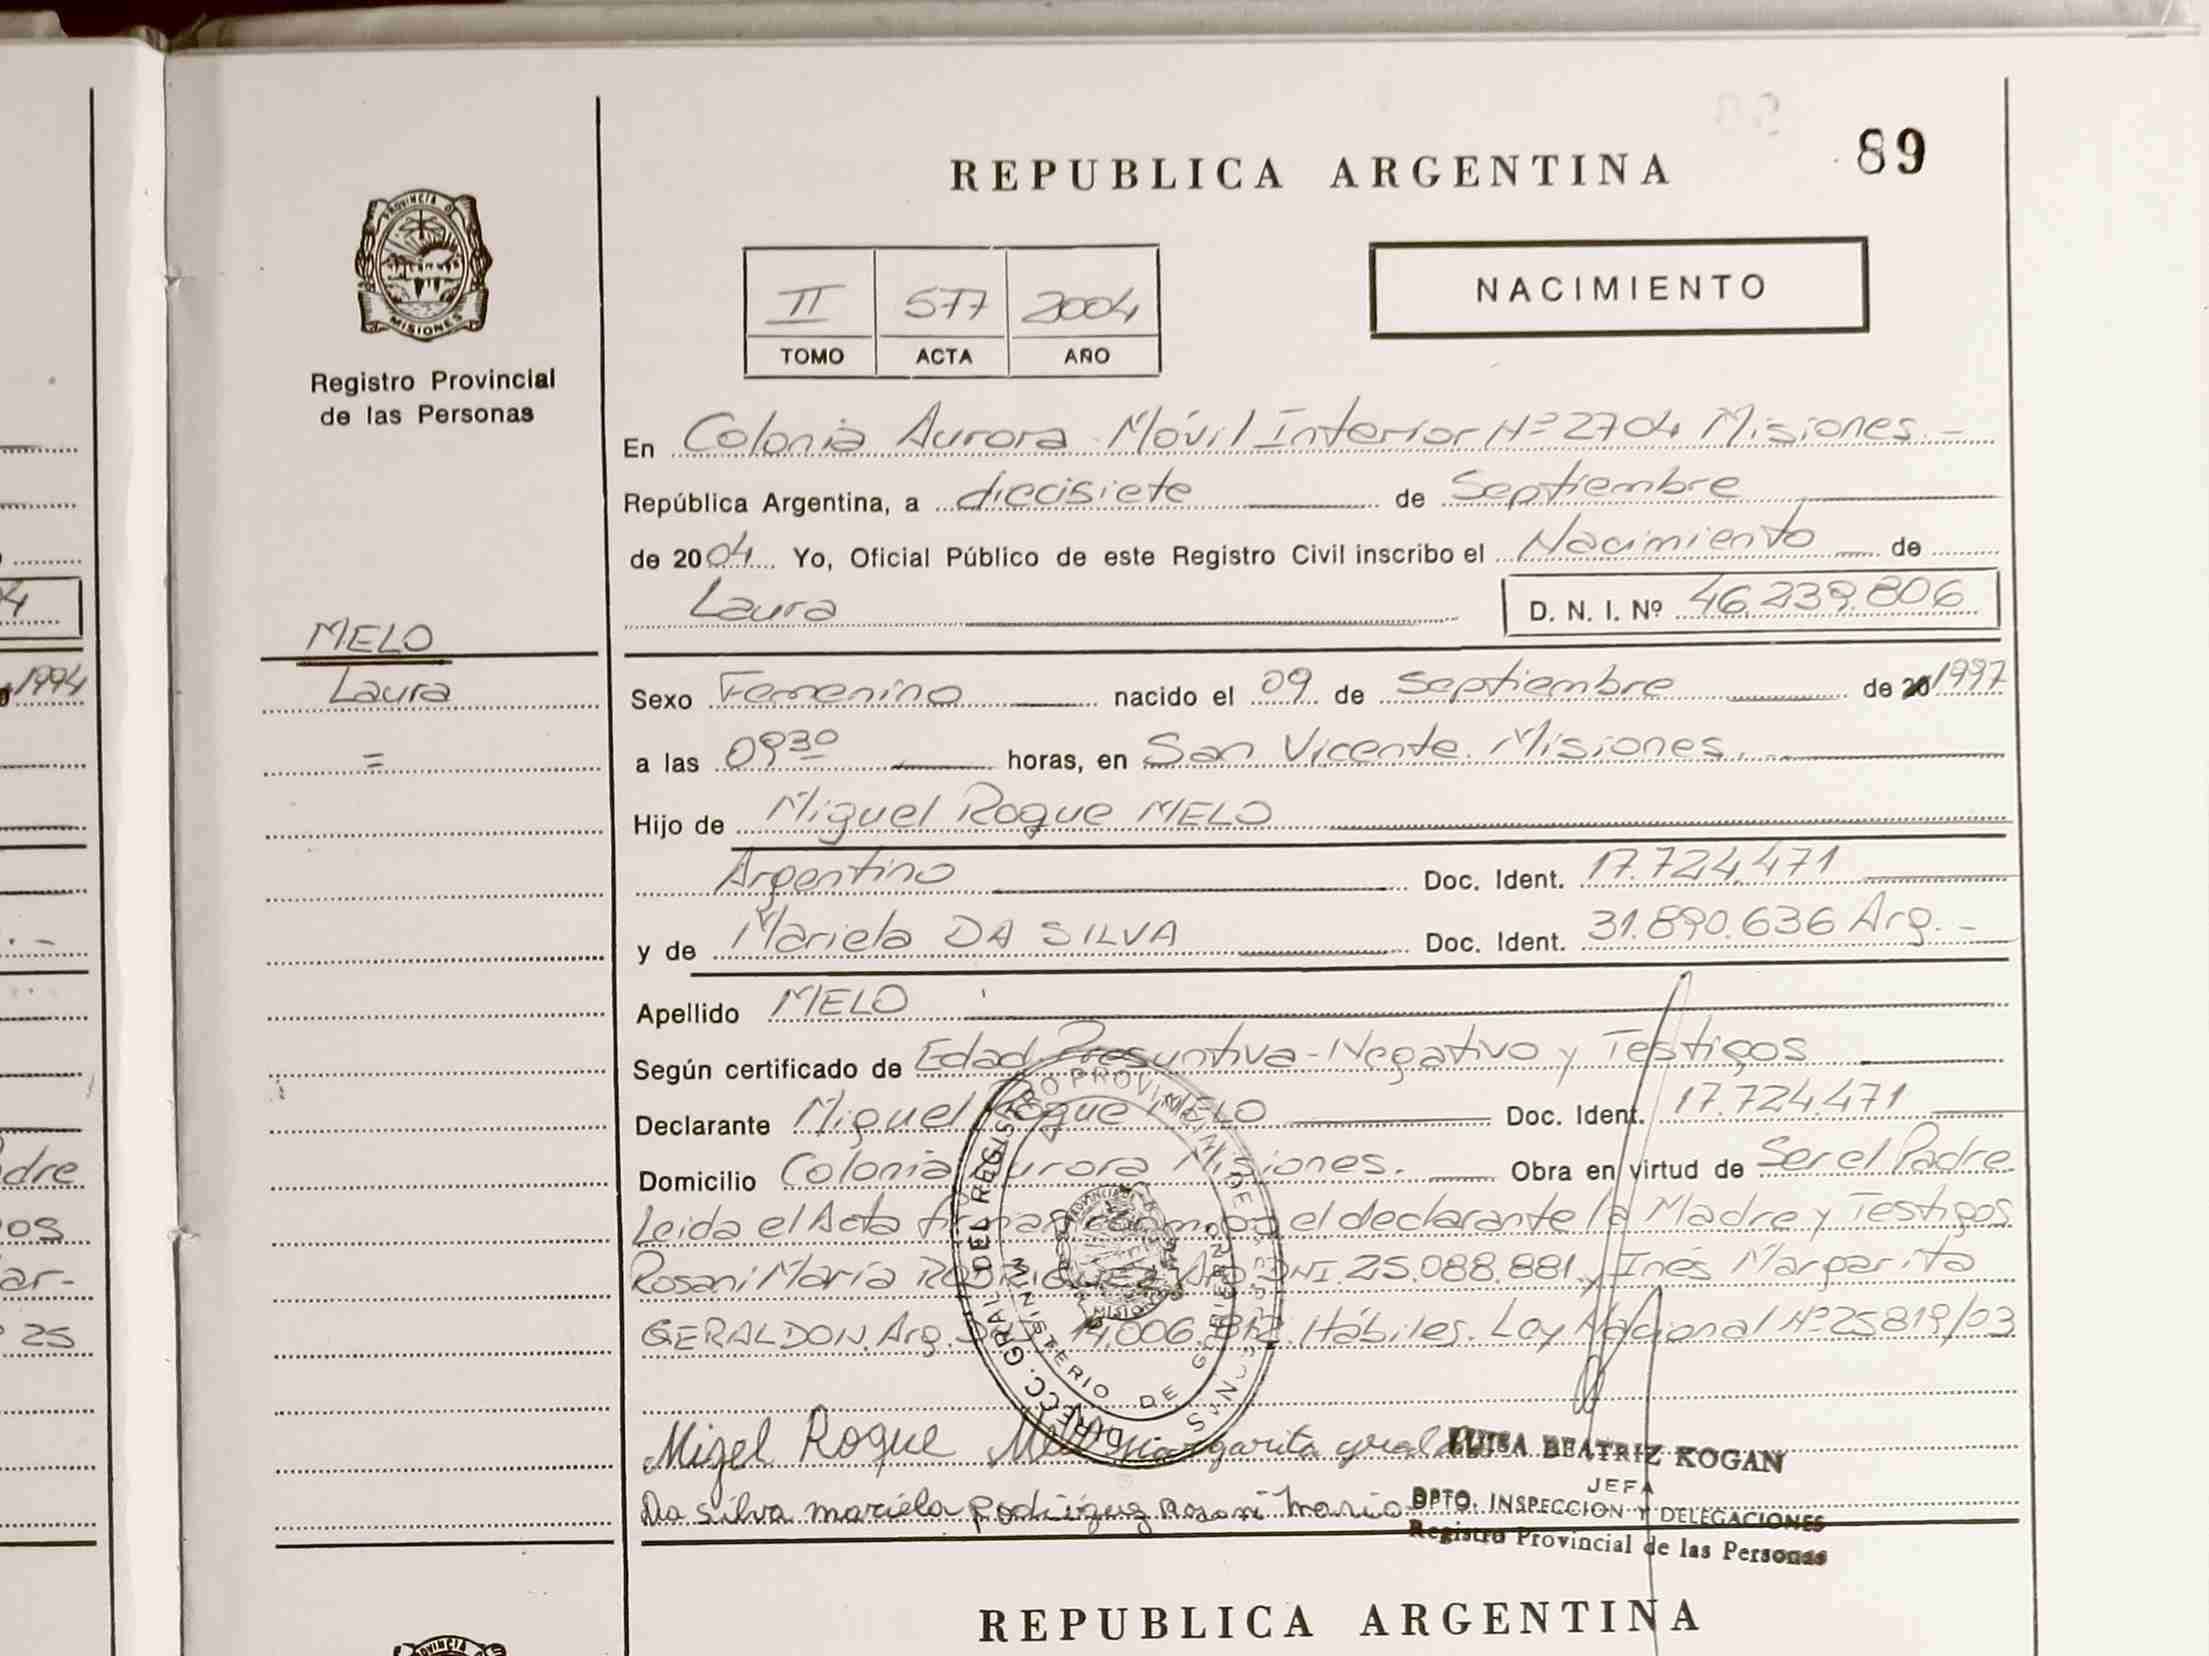 89
REPUBLICA ARGENTINA
PROVINCIA DE
MISIONES
NACIMIENTO
II 577 2004
TOMO ACTA AÑO
Registro Provincial
de las Personas
En Colonia Aurora Móvil Interior Nº 2704 Misiones.-
República Argentina, a diecisiete de Septiembre
de 2004. Yo, Oficial Público de este Registro Civil inscribo el Nacimiento de
Laura D. N. I. Nº 46.239.806
MELO
Laura
=
Sexo Femenino nacido el 09 de Septiembre de 20 1997
a las 09 30 horas, en San Vicente. Misiones.
Hijo de Miguel Roque MELO
Argentino Doc. Ident. 17.724.471
y de Mariela DA SILVA Doc. Ident. 31.890.636 Arg.-
Apellido MELO
Según certificado de Edad Presuntiva-Negativo y Testigos
Declarante Miguel Roque MELO Doc. Ident. 17.724.471
Domicilio Colonia Aurora Misiones. Obra en virtud de Ser el Padre
Leida el Acta firman conmigo el declarante la Madre y Testigos
Rosani María RODRIGUEZ Arg. DNI. 25.088.881 y Inés Margarita
GERALDON. Arg. 14.006.812. Hábiles. Ley Nacional Nº 25819/03
DIRECC. GRAL. DEL REGISTRO PROVINCIAL DE LAS PERSONAS
MINISTERIO DE GOBIERNO
MISIONES
Migel Roque Melo margarita
Da Silva mariela Rodriguez Rosani maria
LUISA BEATRIZ KOGAN
JEFA
DPTO. INSPECCION Y DELEGACIONES
Registro Provincial de las Personas
REPUBLICA ARGENTINA
1994
dre
os
ar-
25